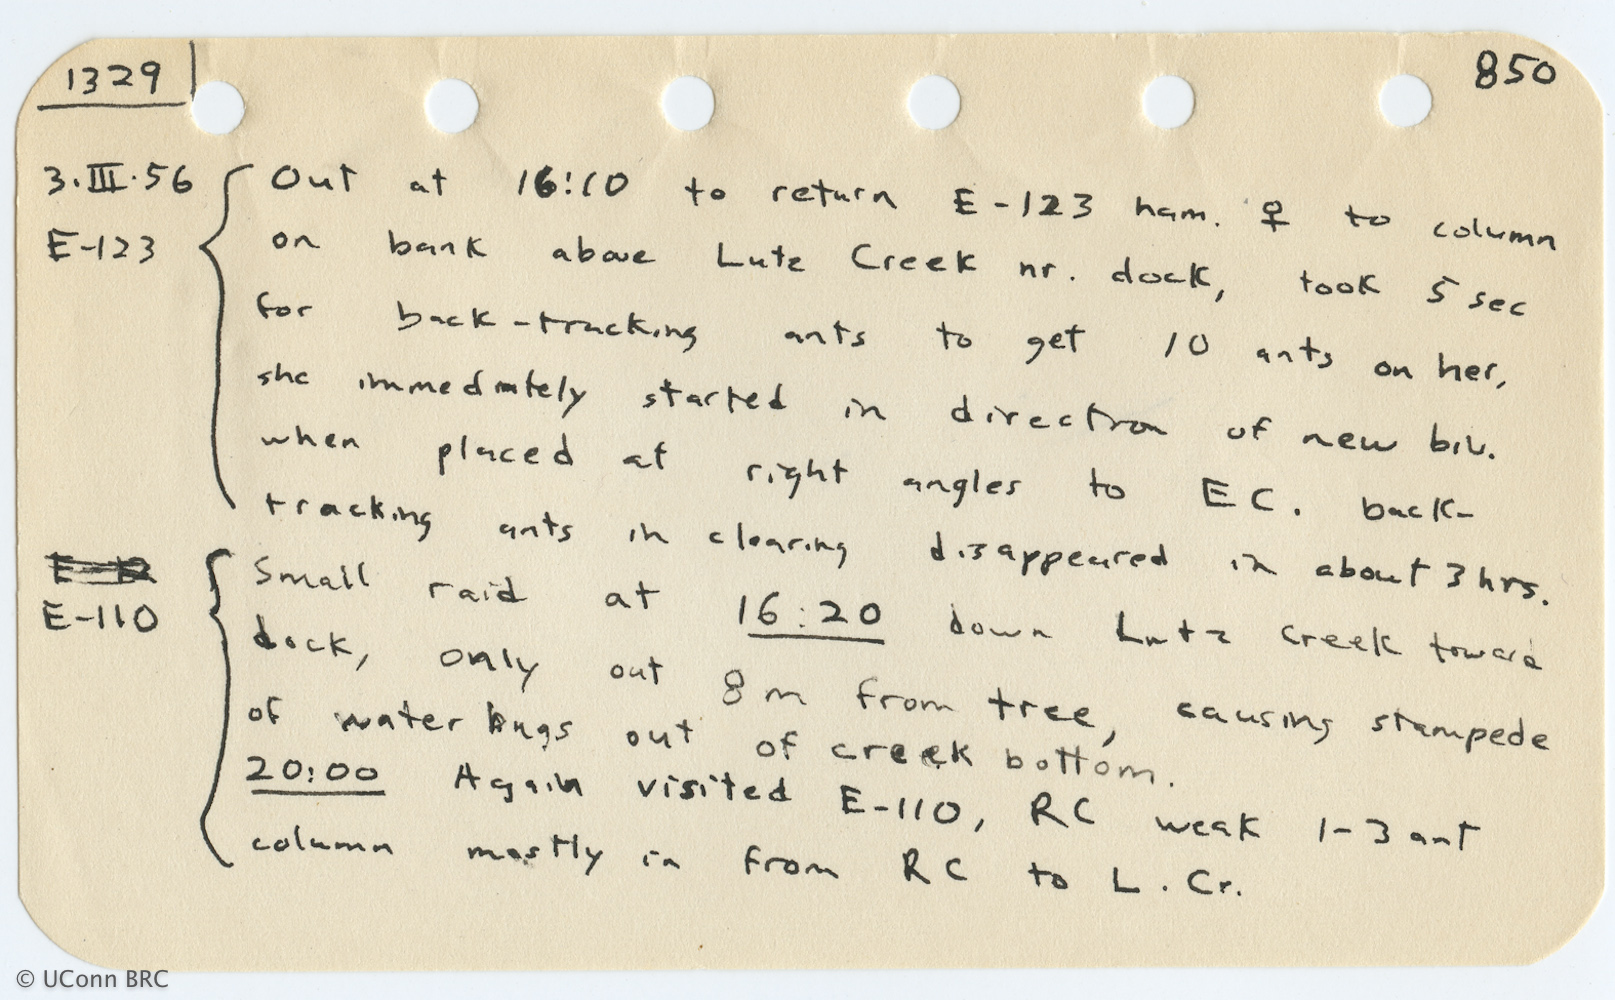 1329
850
3.III.56
E-123
Out at 16:10 to return E-123 ham. ♀ to column
on bank above Lutz Creek nr. dock, took 5 sec
for back-tracking ants to get 10 ants on her,
she immediately started in direction of new biv.
when placed at right angles to EC. back-
tracking ants in clearing disappeared in about 3 hrs.
E-110
Small raid at 16:20 down Lutz Creek toward
dock, only out 8 m from tree, causing stampede
of water bugs out of creek bottom.
20:00 Again visited E-110, RC weak 1-3 ant
column mostly in from RC to L. Cr.
© UConn BRC